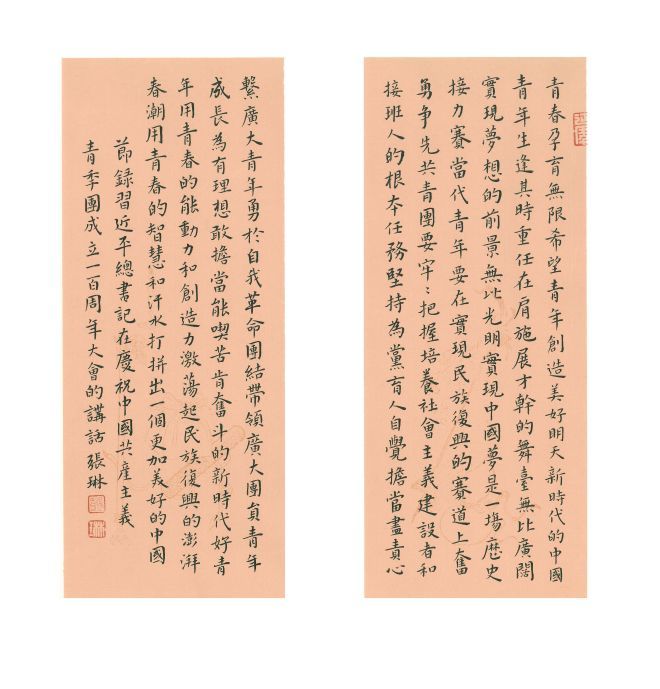 青春孕育無限希望青年創造美好明天新時代的中國
青年生逢其時重任在肩施展才幹的舞臺無比廣闊
實現夢想的前景無比光明實現中國夢是一場歷史
接力賽當代青年要在實現民族復興的賽道上奮
勇爭先共青團要牢〻把握培養社會主義建設者和
接班人的根本任務堅持為黨育人自覺擔當盡責心
繫廣大青年勇於自我革命團結帶領廣大團員青年
成長為有理想敢擔當能喫苦肯奮斗的新時代好青
年用青春的能動力和創造力激蕩起民族復興的澎湃
春潮用青春的智慧和汗水打拼出一個更加美好的中國
節錄習近平總書記在慶祝中國共產主義
青季團成立一百周年大會的講話張琳